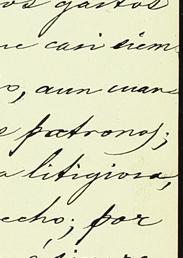 os gastos
ue casi siem-
o, aun cuan-
s patronos);
a litigiosa,
echo; por